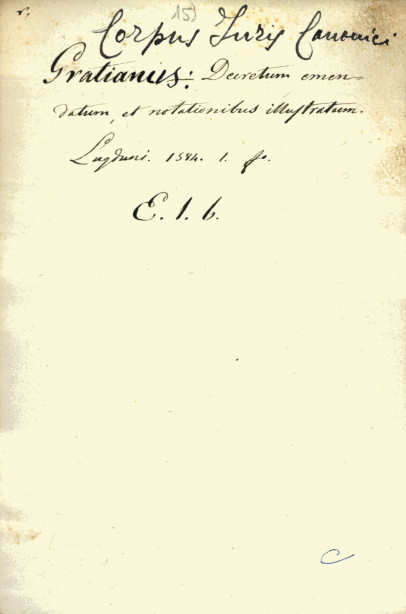 15)
r.
Corpus Juris Canonici
Gratianus: Decretum emen-
datum, et notationibus illustratum.
Lugduni. 1584. 1. f°.
E. 1. b.
C